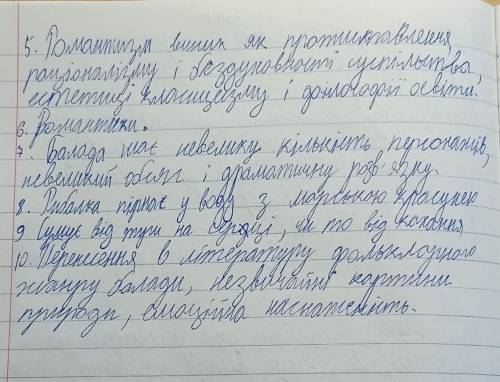 5. Романтизм виник як протиставлення
раціоналізму і бездуховності суспільства,
естетиці класицизму і філософії освіти.
6. Романтики.
7. Балада має невелику кількість персонажів,
невеликий обсяг і драматичну розв'язку.
8. Рибалка пірнає у воду з морською красунею
9 Сумує від туги на серці, чи то від кохання
10. Перенесення в літературу фольклорного
жанру балади, незвичайні картини
природи, емоційна наснаженість.